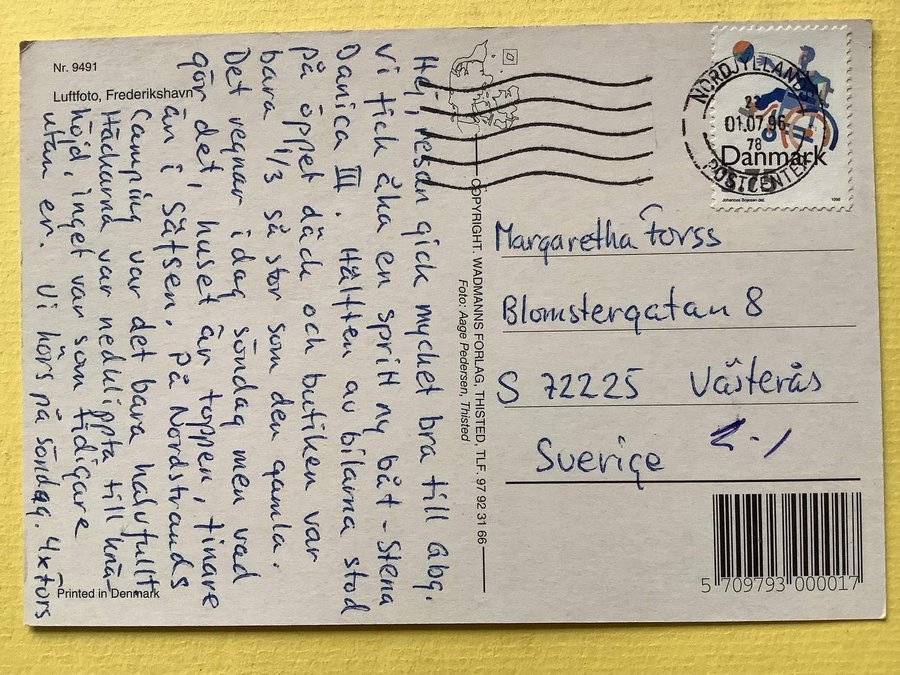 Nr. 9491
Luftfoto, Frederikshavn
Hej, resan gick mycket bra till Gbg.
Vi fick åka en spritt ny båt - Stena
Danica III. Hälften av bilarna stod
på öppet däck och butiken var
bara 1/3 så stor som den gamla.
Det regnar idag söndag men vad
gör det, huset är toppen, finare
än i Säfsen. På Nordstrands
Camping var det bara halvfullt.
Häckarna var nedklippta till knä-
höjd, inget var som tidigare
utan er. Vi hörs på söndag. 4xFors
Printed in Denmark
COPYRIGHT. WADMANNS FORLAG, THISTED, TLF. 97 92 31 66
Foto: Aage Pedersen, Thisted
NORDJYLLANDS
POSTCENTER
01.07.96
78
Danmark
Johannes Bojesen del.
1996
Margaretha Forss
Blomstergatan 8
S 72225 Västerås
Sverige
5 709793 000017